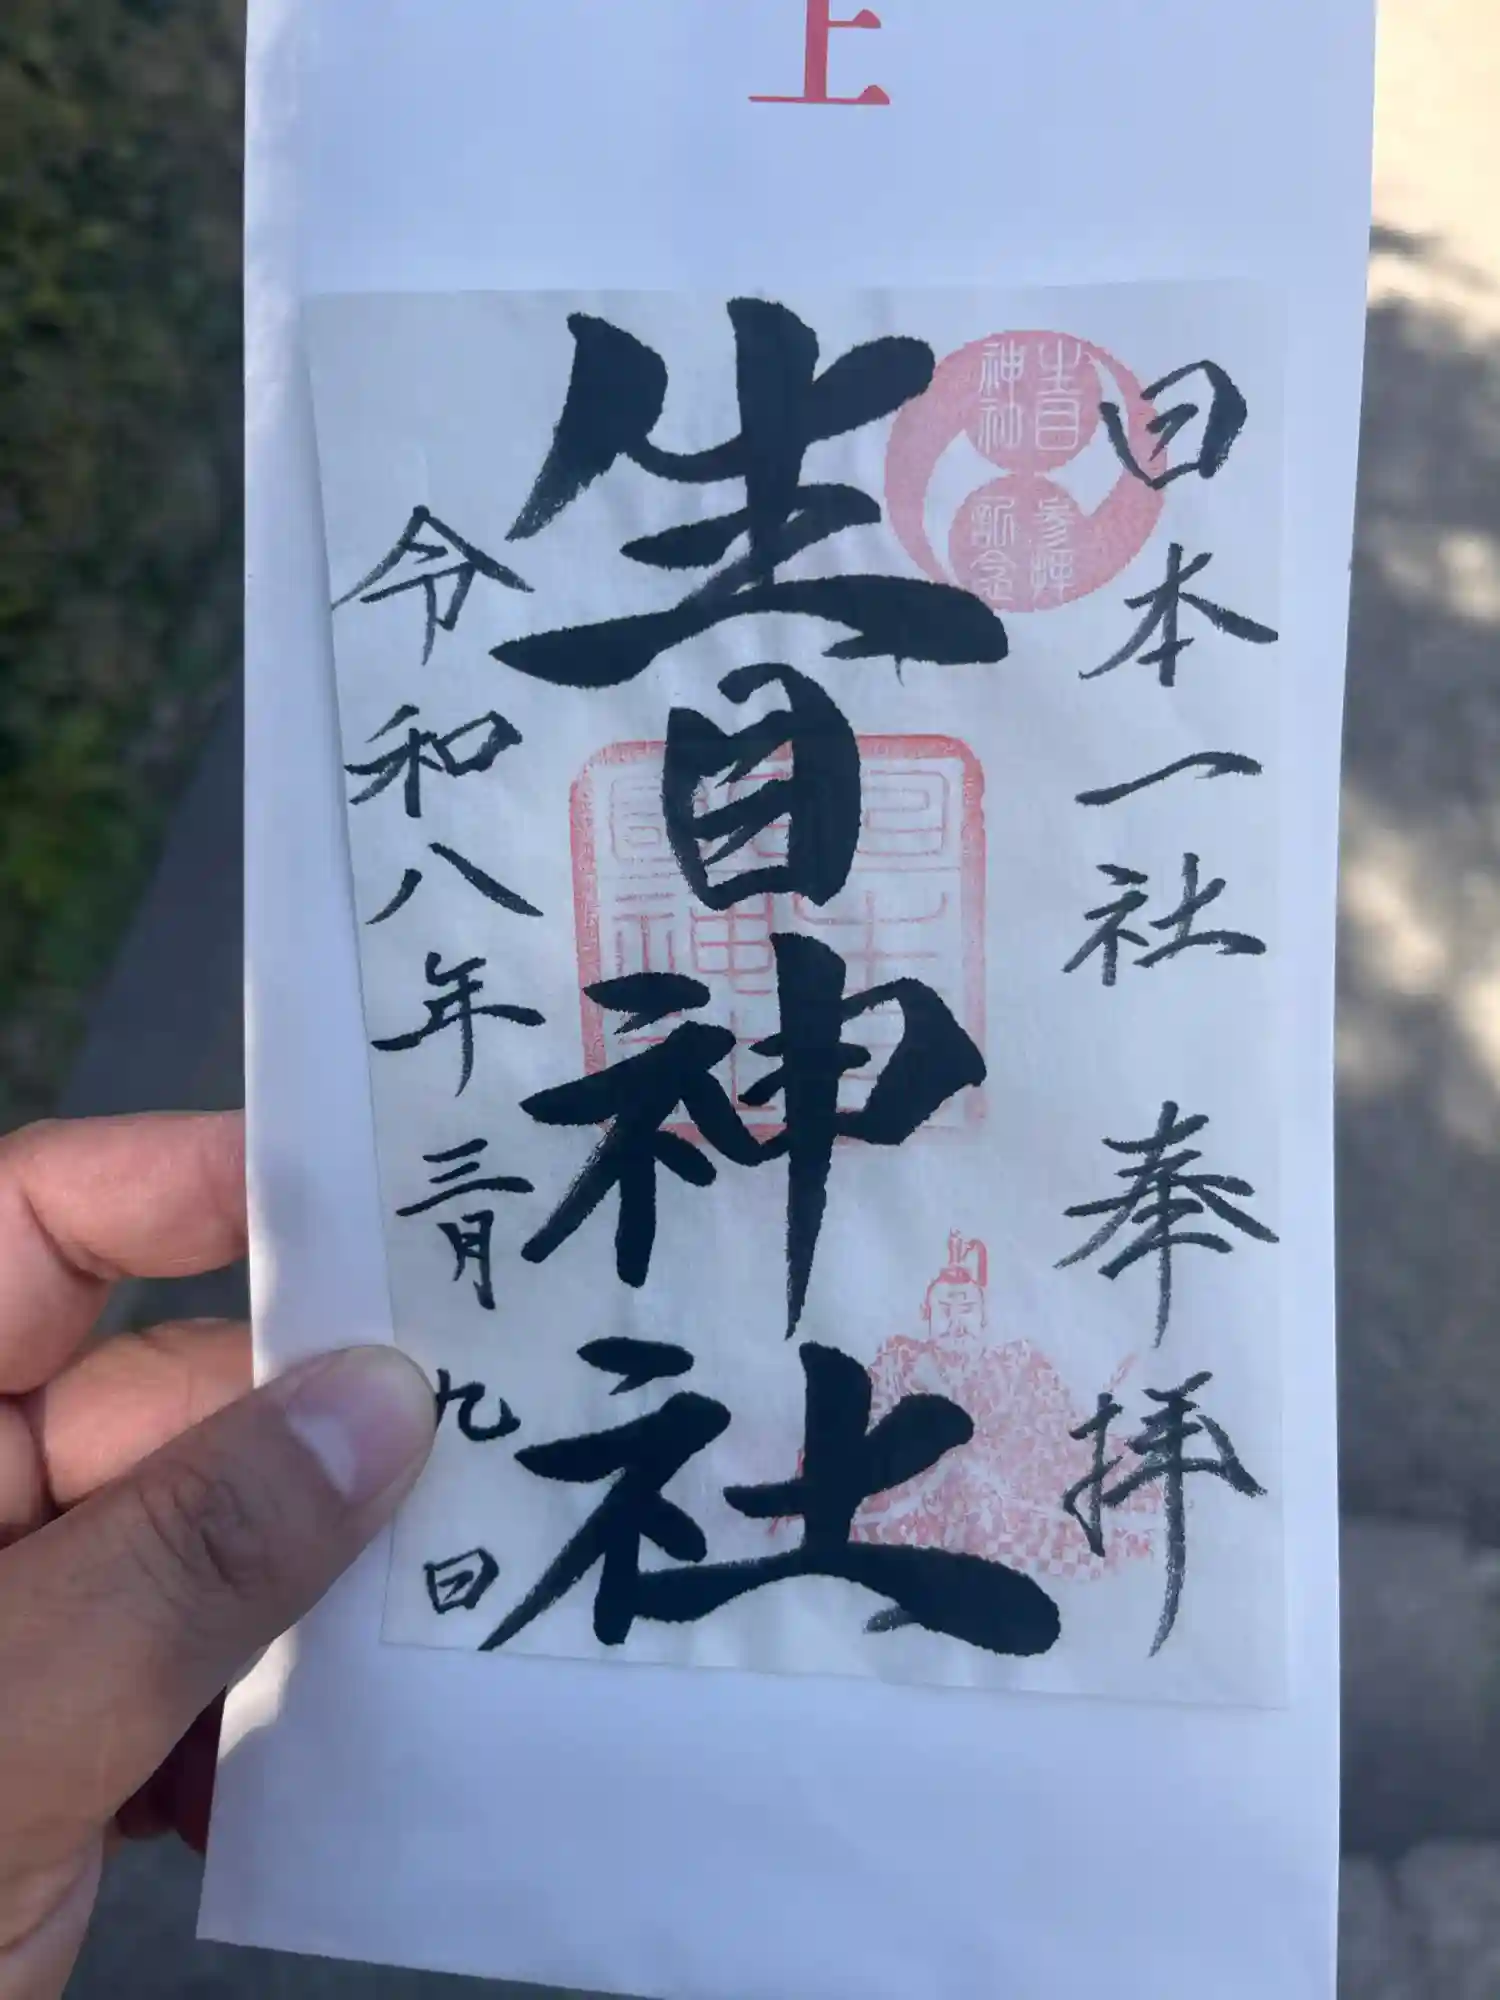 上
日本一社 奉拝
生目神社
令和八年三月九日
生目
神社
参拝
記念